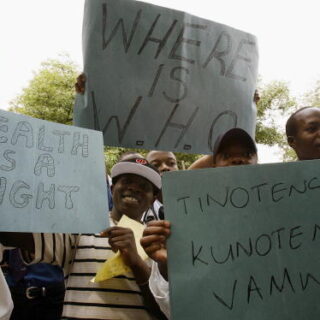 WHERE
IS
W.H.O
HEALTH
IS A
RIGHT
TINOTEND
KUNOTEN
VAMW